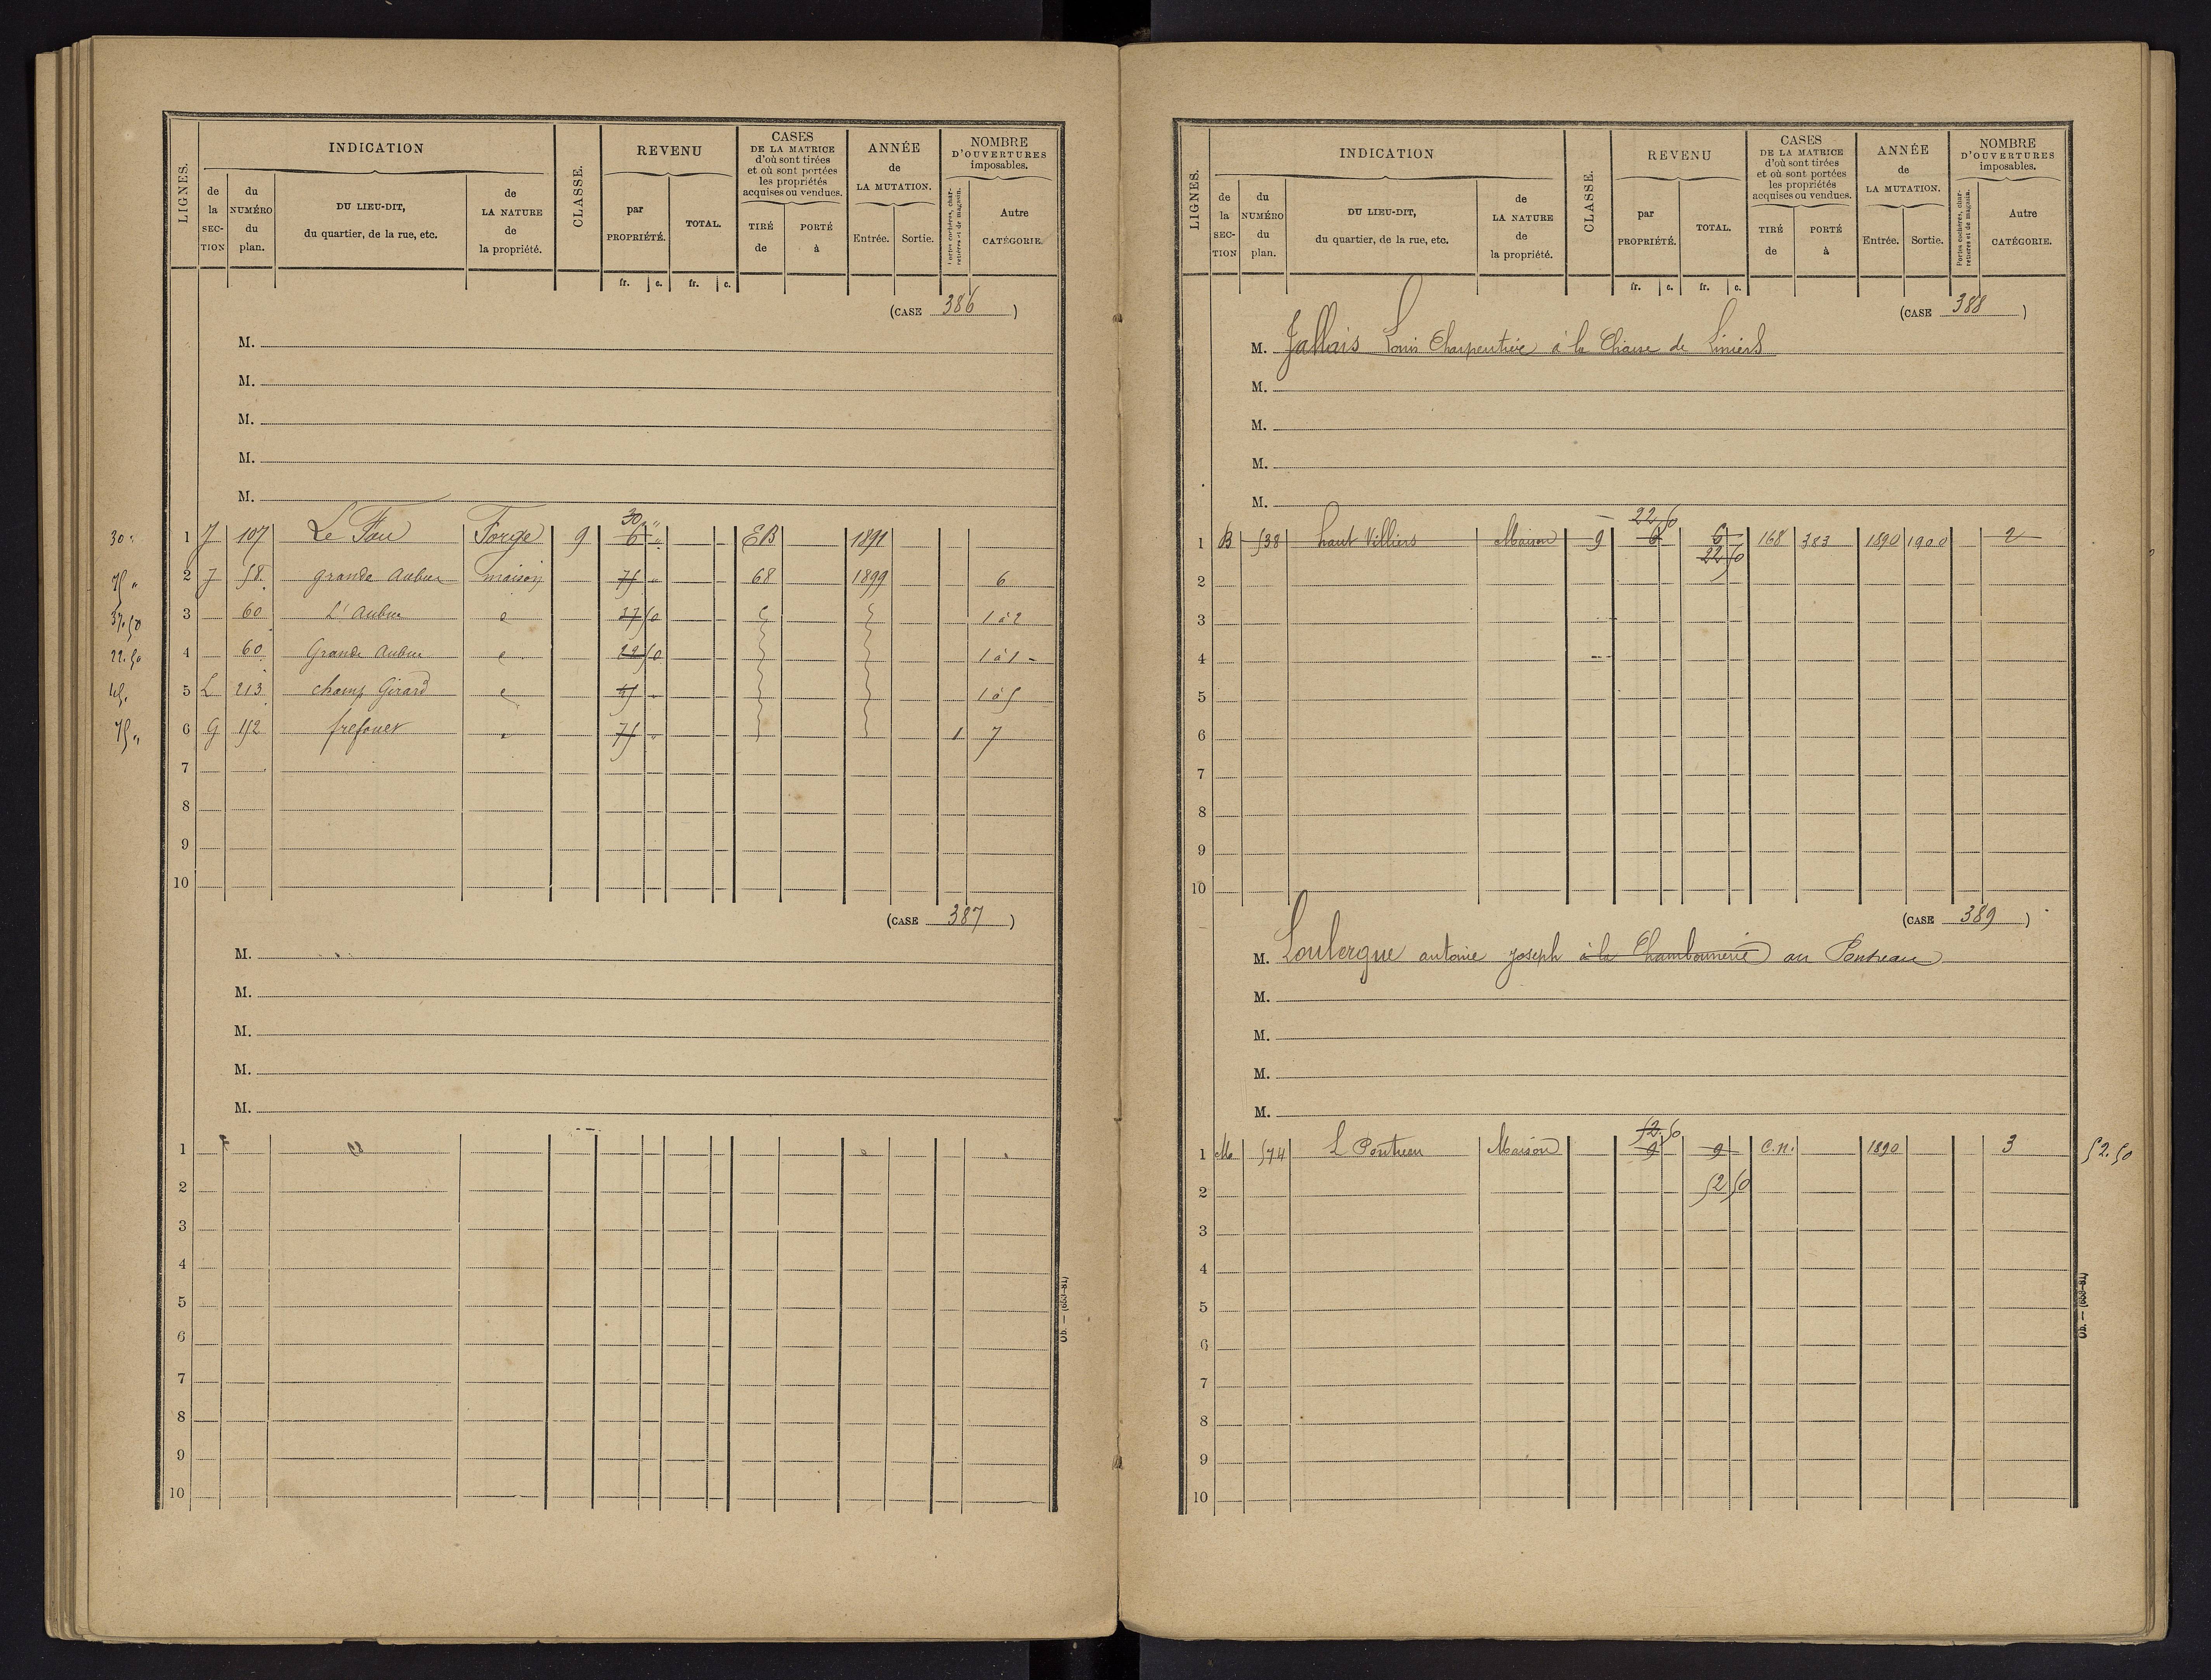 LIGNES.
INDICATION
de la SECTION
du NUMÉRO du plan.
DU LIEU-DIT, du quartier, de la rue, etc.
de LA NATURE de la propriété.
CLASSE.
REVENU
par PROPRIÉTÉ.
TOTAL.
fr. c. fr. c.
CASES DE LA MATRICE d'où sont tirées et où sont portées les propriétés acquises ou vendues.
TIRÉ de
PORTÉ à
ANNÉE de LA MUTATION.
Entrée. Sortie.
NOMBRE D'OUVERTURES imposables.
Portes cochères, charretières et de magasin.
Autre CATÉGORIE.
(CASE 386)
M.
M.
M.
M.
M.
30 "
30 "
1 J 107 Le Fau Forge 9 6 " EB 1891
75 " 2 J 58 grande Aubue maison 75 " 68 1899 6
37.50 3 60 L'Aubue 37 50 1 à 2
22.50 4 60 Grande Aubue 22 50 1 à 1
45. 5 L 213 champ Girard 45 1 à 5
75 " 6 G 152 75 " 1 7
7
8
9
10
(CASE 387)
M.
M.
M.
M.
M.
1
2
3
4
5
6
7
8
9
10
Ob. — (653-81)
LIGNES.
INDICATION
de la SECTION
du NUMÉRO du plan.
DU LIEU-DIT, du quartier, de la rue, etc.
de LA NATURE de la propriété.
CLASSE.
REVENU
par PROPRIÉTÉ.
TOTAL.
fr. c. fr. c.
CASES DE LA MATRICE d'où sont tirées et où sont portées les propriétés acquises ou vendues.
TIRÉ de
PORTÉ à
ANNÉE de LA MUTATION.
Entrée. Sortie.
NOMBRE D'OUVERTURES imposables.
Portes cochères, charretières et de magasin.
Autre CATÉGORIE.
(CASE 388)
M. Jallais Louis Charpentier à la Chaise de Liniers
M.
M.
M.
M.
22 50
1 B 538 haut Villiers Maison 9 6 6 168 383 1890 1900 2
22 50
2
3
4
5
6
7
8
9
10
(CASE 389)
M. Loubergue antoine Joseph à la Chambonnerie au Pontreau
M.
M.
M.
M.
52 50
1 M 574 L Pontreau Maison 9 9 C.N. 1890 3 52.50
2 52 50
3
4
5
6
7
8
9
10
Ob. — (653-81)